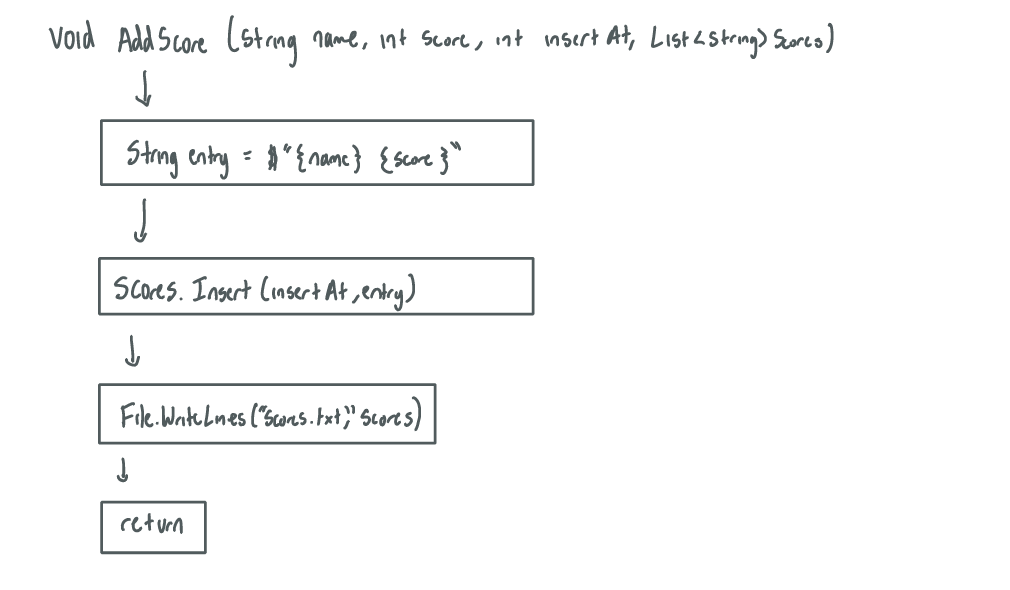 Void AddScore (String name, int score, int insertAt, List<string> Scores)
String entry = $"{name} {score}"
Scores. Insert (insertAt, entry)
File.WriteLines("Scores.txt," Scores)
return